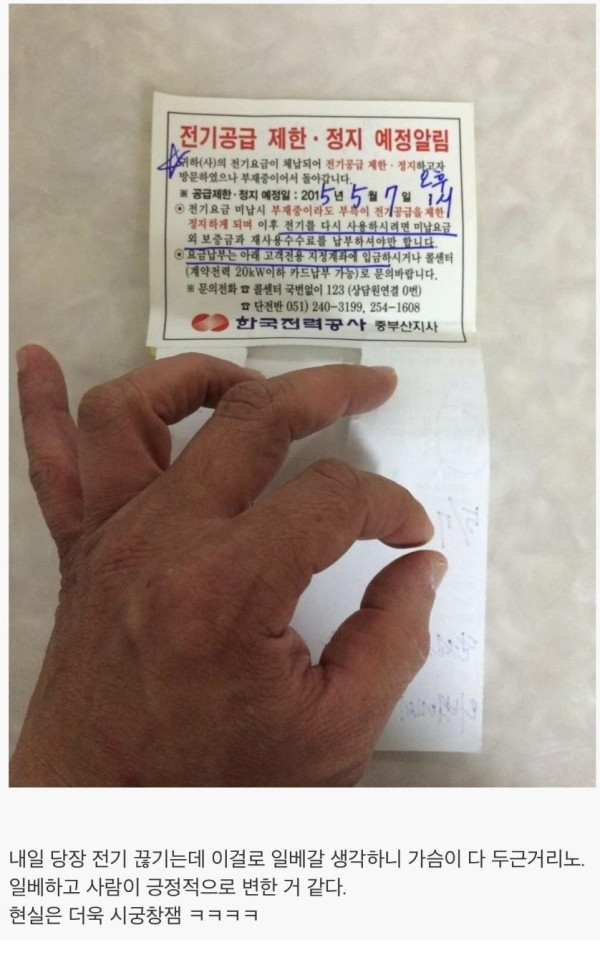 전기공급 제한·정지 예정알림
귀하(사)의 전기요금이 체납되어 전기공급 제한·정지하고자
방문하였으나 부재중이어서 돌아갑니다.
오후
※ 공급제한·정지 예정일 : 2015년 5월 7일 1시
⊙ 전기요금 미납시 부재중이라도 부득이 전기공급을 제한
정지하게 되며 이후 전기를 다시 사용하시려면 미납요금
외 보증금과 재사용수수료를 납부하셔야만 합니다.
⊙ 요금납부는 아래 고객전용 지정계좌에 입금하시거나 콜센터
(계약전력 20kW이하 카드납부 가능)로 문의바랍니다.
※ 문의전화 ☎ 콜센터 국번없이 123 (상담원연결 0번)
☎ 단전반 051) 240-3199, 254-1608
한국전력공사 중부산지사
내일 당장 전기 끊기는데 이걸로 일베갈 생각하니 가슴이 다 두근거리노.
일베하고 사람이 긍정적으로 변한 거 같다.
현실은 더욱 시궁창잼 ㅋㅋㅋㅋ